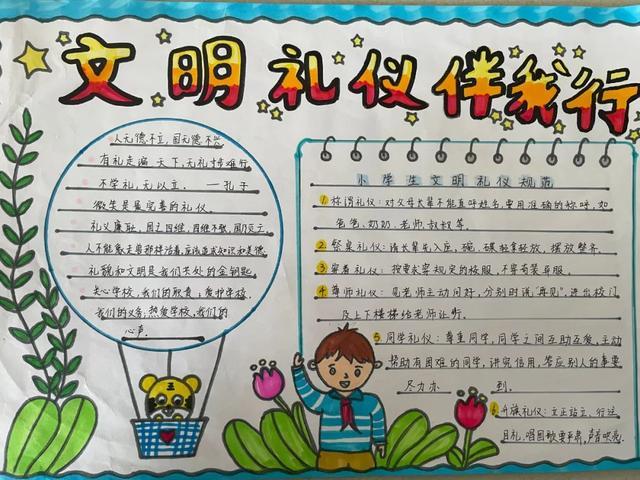 文明礼仪伴我行
人无德不立，国无德不兴
有礼走遍天下，无礼寸步难行
不学礼，无以立。——孔子
微笑是最完善的礼仪。
礼义廉耻，国之四维，四维不张，国乃灭亡
礼貌和文明是我们共处的金钥匙
关心学校，我们的职责；爱护学校，
我们的义务；热爱学校，我们的
心声。
小学生文明礼仪规范
1 称谓礼仪：对父母长辈不能直呼姓名，要用准确的称呼，如
爸爸、奶奶、老师、叔叔等。
2 餐桌礼仪：请长辈先入座，碗、碟
轻放，摆放整齐。
3 穿着礼仪：按要求穿规定的校服，不穿奇装异服。
4 尊师礼仪：见老师主动问好，分别时说“再见”，进出校门
及上下楼梯给老师让行。
5 同学礼仪：尊重同学，同学之间互助互爱，主动
帮助有困难的同学，讲究信用，答应别人的事要
尽力办到。
6 升旗礼仪：立正站立，行注
目礼，唱国歌要严肃，声音响亮